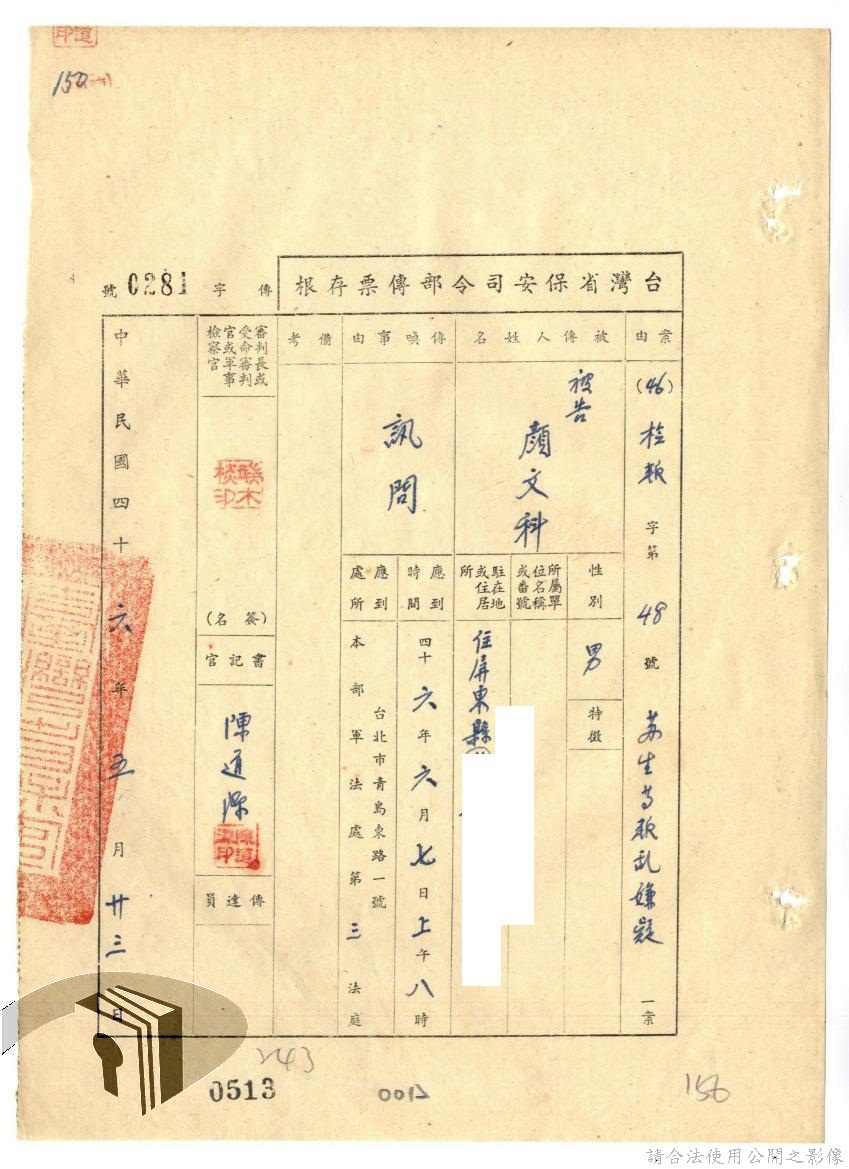 150
台灣省保安司令部傳票存根
傳字 0281 號
案由
(46) 字第 48 號 亂嫌疑 一案
被傳人姓名
被告 顏文科
性別
男
特徵
所屬單位名稱或番號
駐在地或住居所
住屏東縣
傳喚事由
訊問
應到時間
四十六年六月七日上午八時
應到處所
台北市青島東路一號
本部軍法處第三法庭
備考
審判長或受命審判官或軍事檢察官
(簽名)
書記官
陳道深
傳達員
中華民國四十六年五月廿三日
243
0513
0012
156
請合法使用公開之影像